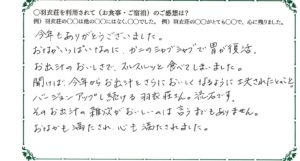 ○羽衣荘を利用されて(お食事・ご宿泊)のご感想は?
例)羽衣荘の○○は他の○○にはなく、○○でした。 例)羽衣荘の○○がとても○○で、心に残りました。
今年もありがとうございました。
おなかいっぱいなのに、カニのシャブシャブで胃が復活。
お出汁のおいしさで、スルスルッと食べてしまいました。
聞けば、今年からお出汁をさらにおいしくなるように工夫されたとのこと。
バージョンアップし続ける羽衣荘さん。流石です。
そのお出汁の雑炊がおいしいのは言うまでもありません。
おなかも満たされ、心も満たされました。